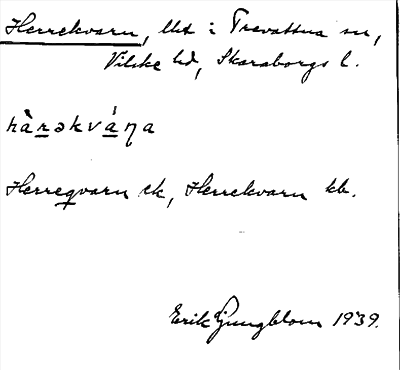 Herrekvarn, lht i Trevattna sn,
Vilske hd, Skaraborgs l.
hàrəkváṇa
Herreqvarn ek, Herrekvarn kb.
Erik Ljungblom 1939.